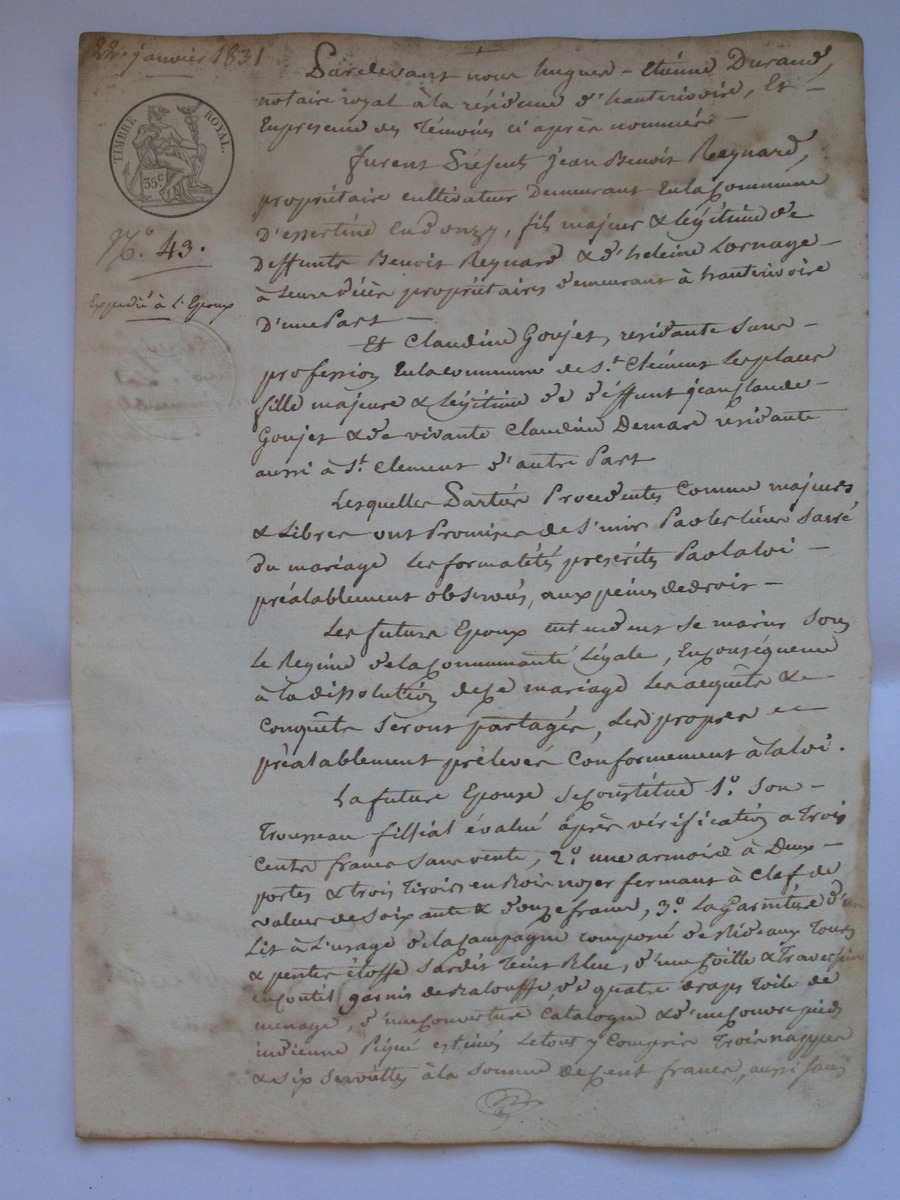 22. janvier 1831
TIMBRE ROYAL.
35 c
N.° 43.
Expédié à L'Epoux
Pardevant nous hugues - Etienne Durand,
notaire royal à la résidence d'hauterivoire, Et -
En presence des Témoins ci après nommés -
furent Présents jean Benoit Reynard,
propriétaire cultivateur Demeurant En la Commune
D'essertine en donzy, fils majeur & légitime de
deffunts Benoit Reynard & d'heleine Lornage -
à Leur décès propriétaires demeurant à hauterivoire
D'une Part -
Et Claudine Goujet, residante sans -
profession En la commune de St. Clément les places
fille majeure & Légitime de déffunt jean Claude -
Goujet & de vivante Claudine Demare résidante
aussi à St. Clement d'autre Part
Lesquelles Parties Procedentes Comme majeurs
& Libres ont Promises de S'unir Par les liens Sacré
du mariage Les formalités prescrites Par la loi -
préalablement observées, aux peines de droit -
Les future Epoux entendent se marier Sous
Le Regime de la Communauté Légale, En conséquence
à la dissolution de ce mariage Les acquêts &
Conquêts Seront partagés, Les propres
préalablement prélevés Conformement à la loi.
La future Epouse Se constitue 1.° Son -
Trousseau fillial évalué après vérification a Trois
Cents francs Sans vente, 2.° une armoire à Deux -
portes & trois Tiroirs en Bois noyer fermant à Clef de
valeur de Soixante & douze francs, 3.° La Garniture d'un
Lit à L'usage de la Campagne composé de Rideaux Tours
& pentes étoffe Sardis Teint Bleu, d'une Coitte & Traversin
en coutil garnis de Balouffe, de quatre draps Toile de
menage, d'une Couverture Catalogne & d'un Couvre pieds
indienne Piqué estimés Le tout y Compris Trois nappes
& six Serviettes à la Somme de Cent francs, aussi Sans